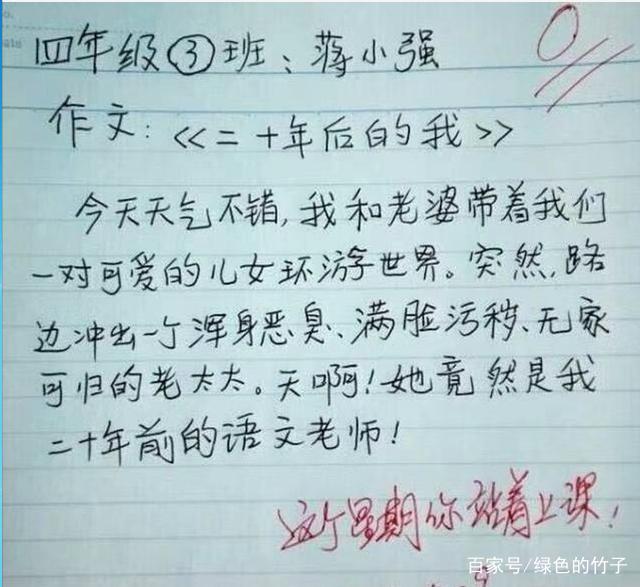 四年级③班：蒋小强
0
作文：<<二十年后的我>>
今天天气不错，我和老婆带着我们
一对可爱的儿女环游世界。突然，路
边冲出一个浑身恶臭、满脸污秽、无家
可归的老太太。天啊！她竟然是我
二十年前的语文老师！
这个星期你站着上课！
百家号/绿色的竹子